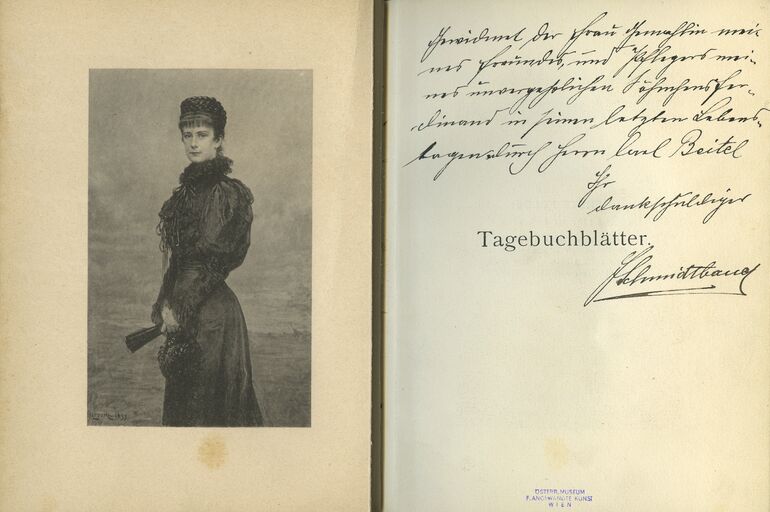 Gewidmet der Frau Gemahlin mei-
nes Freundes und Pflegers mei-
nes unvergeßlichen Söhnchens Fer-
dinand in seinen letzten Lebens-
tagen durch Herrn Carl Beitel
Ihr
dankschuldiger
Tagebuchblätter.
Schmidtbauer
ÖSTERR. MUSEUM
F. ANGEWANDTE KUNST
WIEN